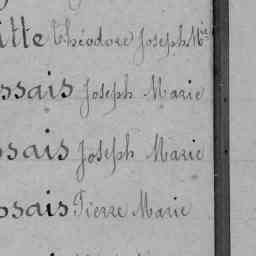 itte Théodore Joseph Mie
ssais Joseph Marie
ssais Joseph Marie
ssais Pierre Marie